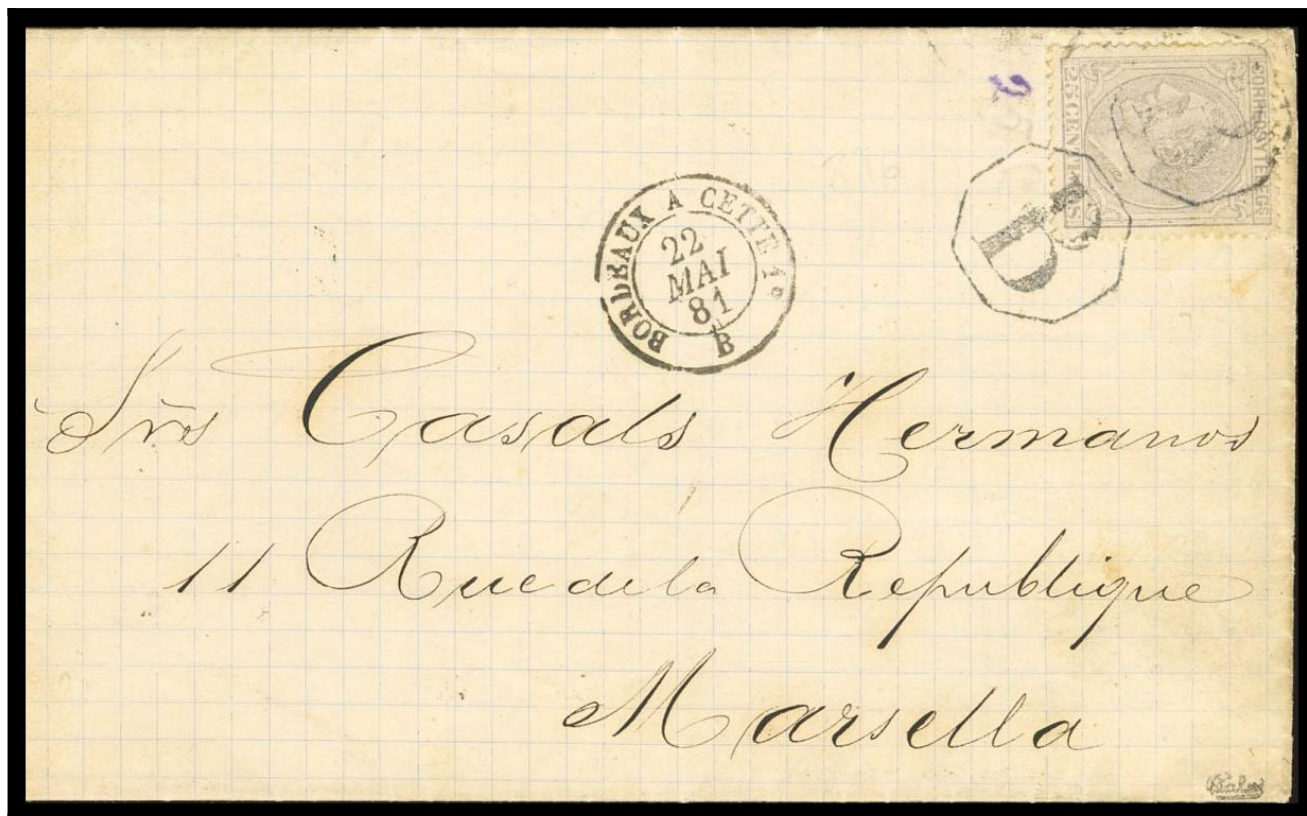 2
CORREOS Y TELEGS
25 CENT
BORDEAUX A CETTE 1°
22
MAI
81
B
B
Srõs Casals Hermanos
11 Rue de la Republique
Marsella